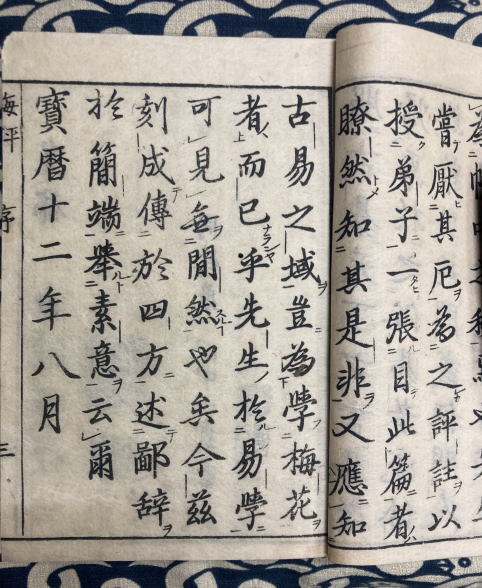 嘗厭其厄為之評註以
授弟子一張目此篇者
瞭然知其是非又應知
古易之域豈為學梅花
者而已乎先生於易學
可見無間然也矣今茲
刻成傳於四方述鄙辞
於簡端舉素意云爾
寶曆十二年八月
序 三